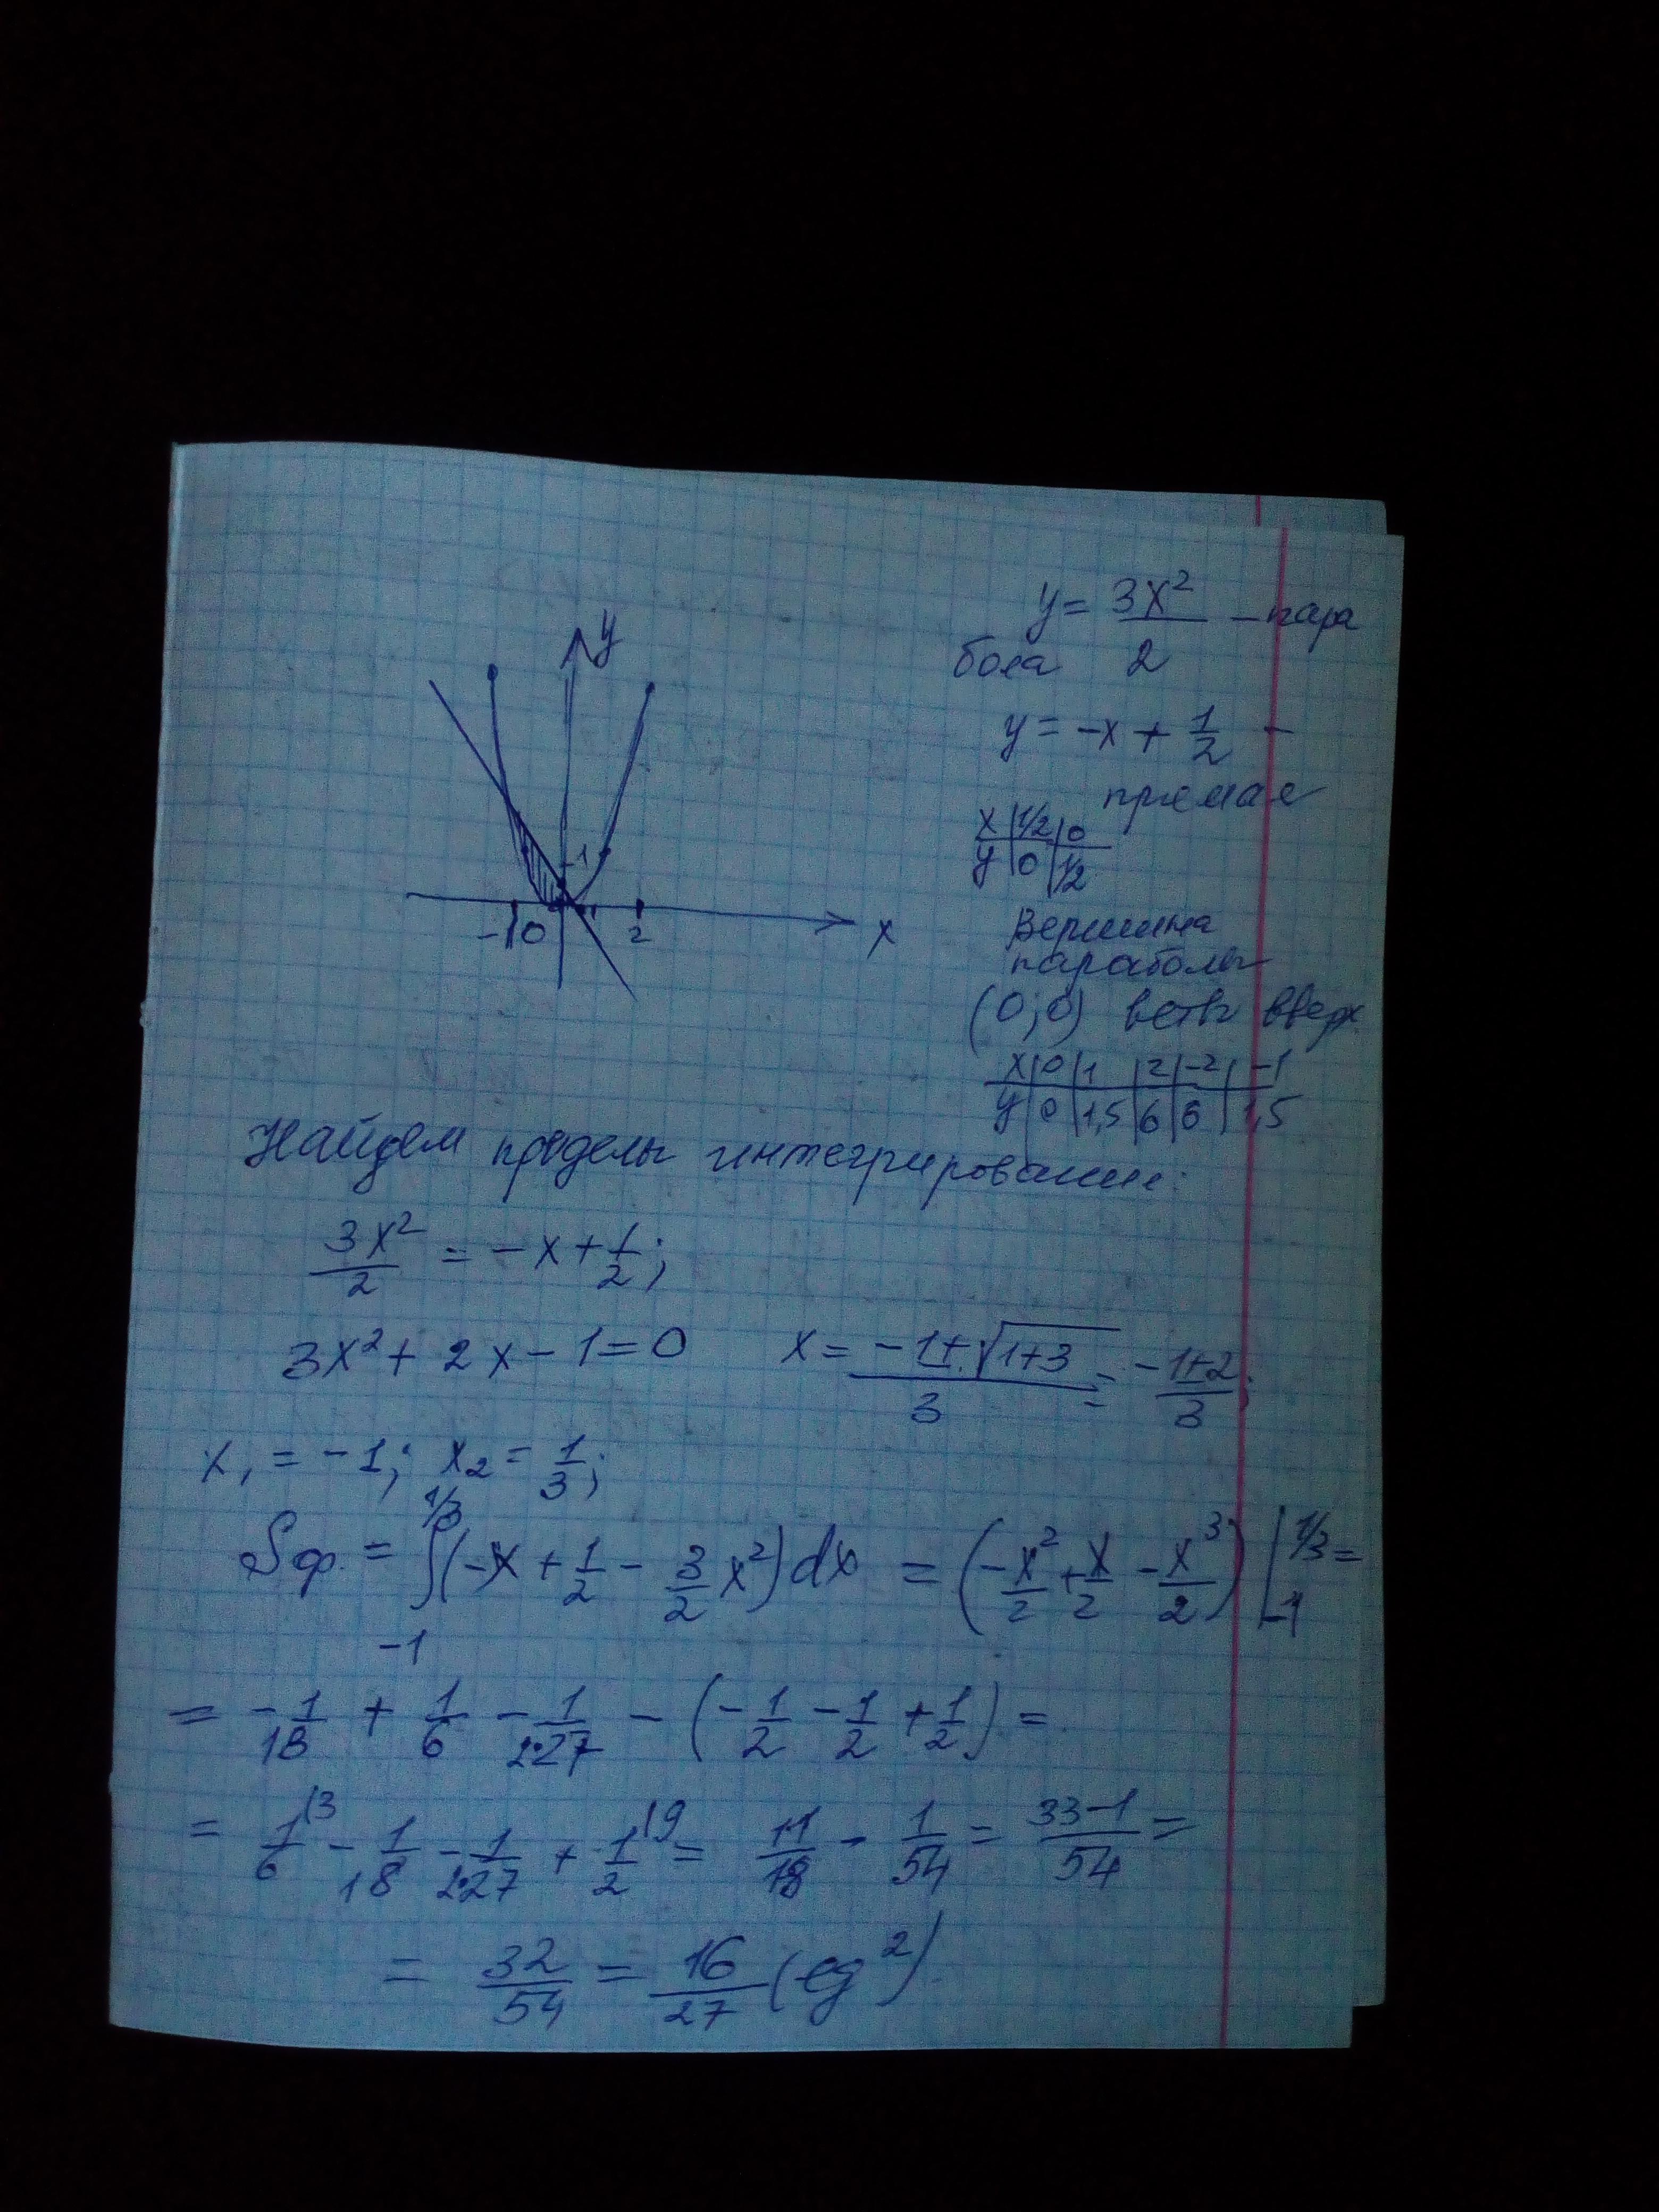 y
1
-1 0 2 x
y = 3x²/2 – пара
бола
y = -x + 1/2 –
прямая
x | 1/2 | 0
y | 0 | 1/2
Вершина
параболы
(0;0) ветви вверх
x | 0 | 1 | 2 | -2 | -1
y | 0 | 1,5 | 6 | 6 | 1,5
Найдем пределы интегрирования:
3x²/2 = -x + 1/2;
3x² + 2x - 1 = 0 x = (-1 ± √(1+3))/3 = (-1±2)/3;
x₁ = -1; x₂ = 1/3;
Sф. = ∫₋₁^(1/3) (-x + 1/2 - 3/2 x²) dx = (-x²/2 + x/2 - x³/2) |₋₁^(1/3) =
= -1/18 + 1/6 - 1/(2·27) - (-1/2 - 1/2 + 1/2) =
= 1/6 ⁽³ - 1/18 - 1/(2·27) + 1/2 ⁽⁹ = 11/18 - 1/54 = (33-1)/54 =
= 32/54 = 16/27 (ед²).